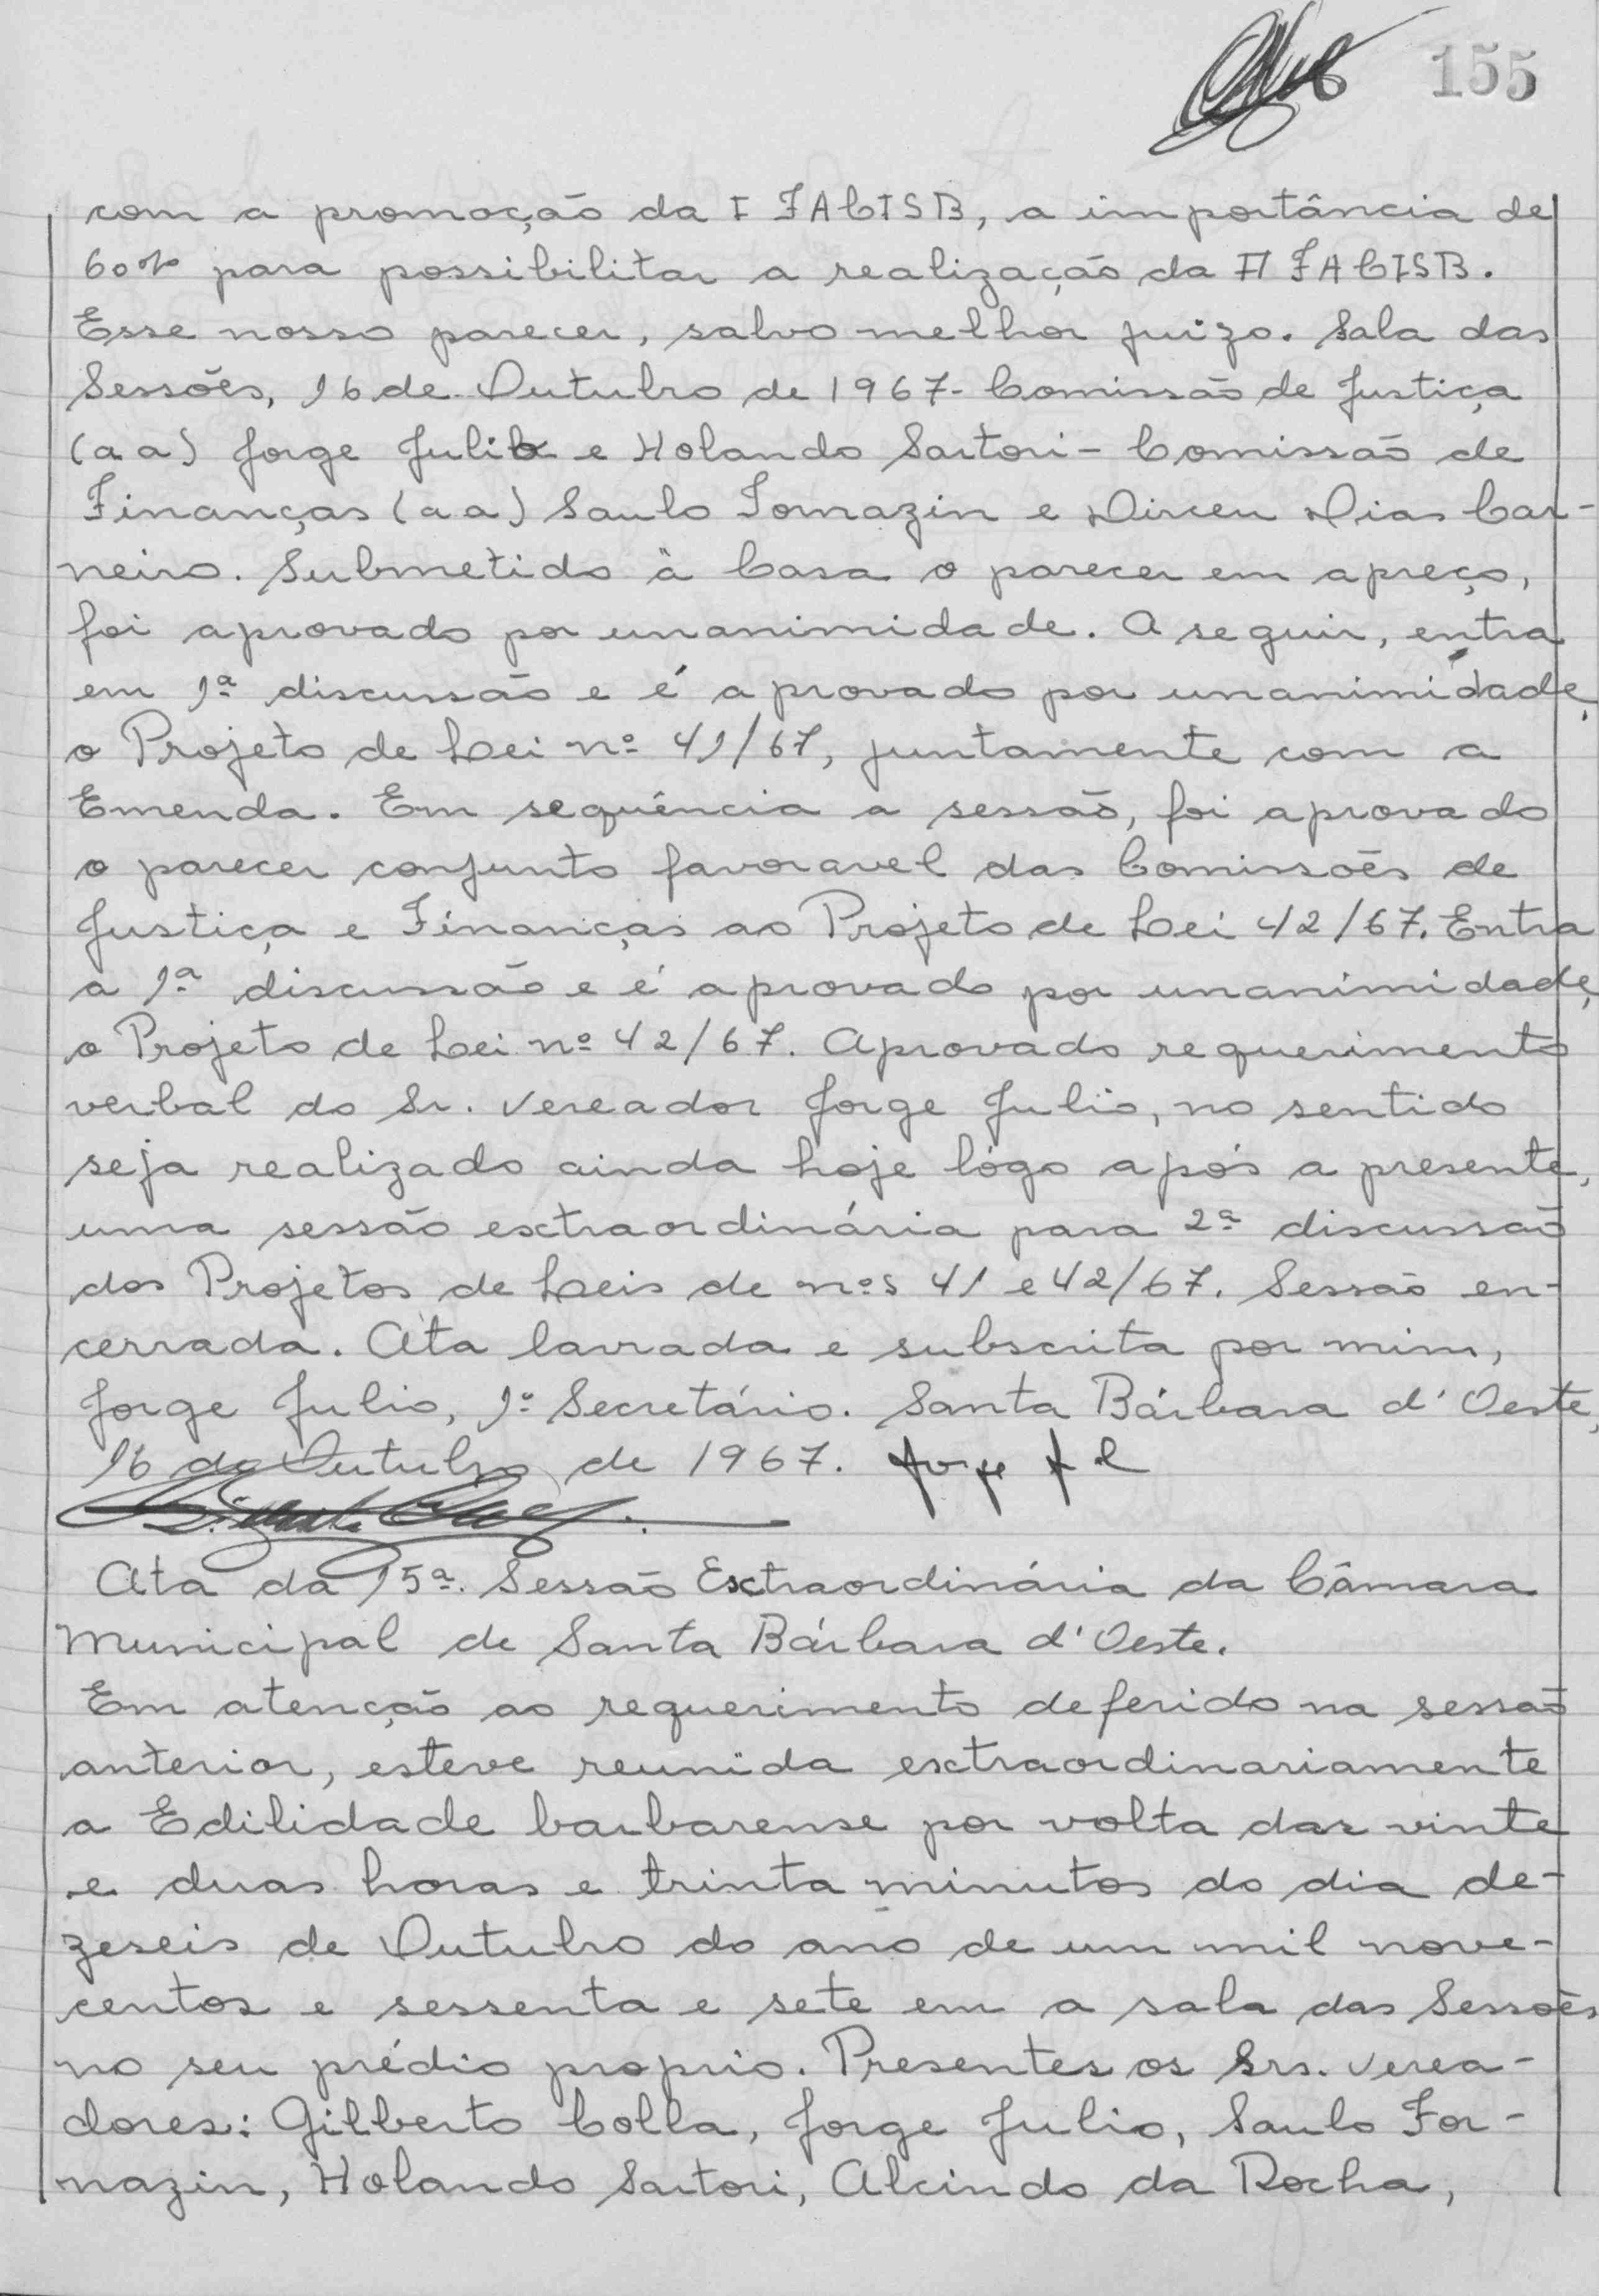 155
com a promoção da I FACISB, a importância de
60% para possibilitar a realização da II FACISB.
Esse nosso parecer, salvo melhor juizo. Sala das
Sessões, 16 de Outubro de 1967- Comissão de Justiça
(aa) Jorge Julio e Holando Sartori - Comissão de
Finanças (aa) Saulo Fornazin e Dirceu Dias Car-
neiro. Submetido à Casa o parecer em apreço,
foi aprovado por unanimidade. A seguir, entra
em 1ª discussão e é aprovado por unanimidade,
o Projeto de Lei nº 41/67, juntamente com a
Emenda. Em seqüência a sessão, foi aprovado
o parecer conjunto favoravel das Comissões de
Justiça e Finanças ao Projeto de Lei 42/67. Entra
a 1ª discussão e é aprovado por unanimidade,
o Projeto de Lei nº 42/67. Aprovado requerimento
verbal do Sr. Vereador Jorge Julio, no sentido
seja realizado ainda hoje lógo após a presente,
uma sessão extraordinária para 2ª discussão
dos Projetos de Leis de nºs 41 e 42/67. Sessão en-
cerrada. Ata lavrada e subscrita por mim,
Jorge Julio, 1º Secretário. Santa Bárbara d'Oeste,
16 de Outubro de 1967. Jorge
Ata da 15ª. Sessão Extraordinária da Câmara
Municipal de Santa Bárbara d'Oeste.
Em atenção ao requerimento deferido na sessão
anterior, esteve reunida extraordinariamente
a Edilidade barbarense por volta das vinte
e duas horas e trinta minutos do dia de-
zeseis de Outubro do ano de um mil nove-
centos e sessenta e sete em a sala das Sessões
no seu prédio proprio. Presentes os Srs. Verea-
dores: Gilberto Colla, Jorge Julio, Saulo For-
nazin, Holando Sartori, Alcindo da Rocha,